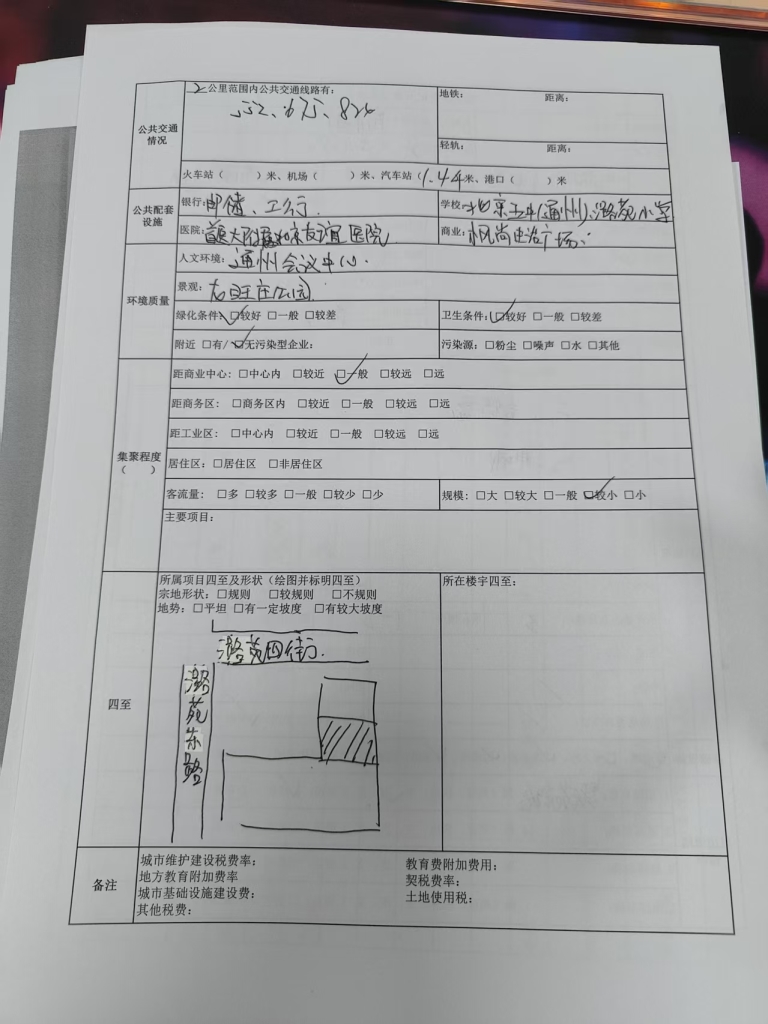 公共交通情况
2公里范围内公共交通线路有:
552、675、824
地铁: 距离:
轻轨: 距离:
火车站( )米、机场( )米、汽车站(1.44米、港口( )米
公共配套设施
银行:邮储、工行.
学校:北京五中(通州)、潞苑小学
医院:首医大附属北京友谊医院
商业:
环境质量
人文环境:通州会议中心.
景观:
绿化条件:☑较好 □一般 □较差
卫生条件:☑较好 □一般 □较差
附近 □有/☑无污染型企业:
污染源:□粉尘 □噪声 □水 □其他
集聚程度
( )
距商业中心:□中心内 □较近 ☑一般 □较远 □远
距商务区: □商务区内 □较近 □一般 □较远 □远
距工业区: □中心内 □较近 □一般 □较远 □远
居住区:□居住区 □非居住区
客流量:□多 □较多 □一般 □较少 □少
规模:□大 □较大 □一般 ☑较小 □小
主要项目:
四至
所属项目四至及形状(绘图并标明四至)
宗地形状:□规则 □较规则 □不规则
地势:□平坦 □有一定坡度 □有较大坡度
所在楼宇四至:
潞苑四街.
潞苑东路
备注
城市维护建设税费率:
教育费附加费用:
地方教育附加费率
契税费率:
城市基础设施建设费:
土地使用税:
其他税费: